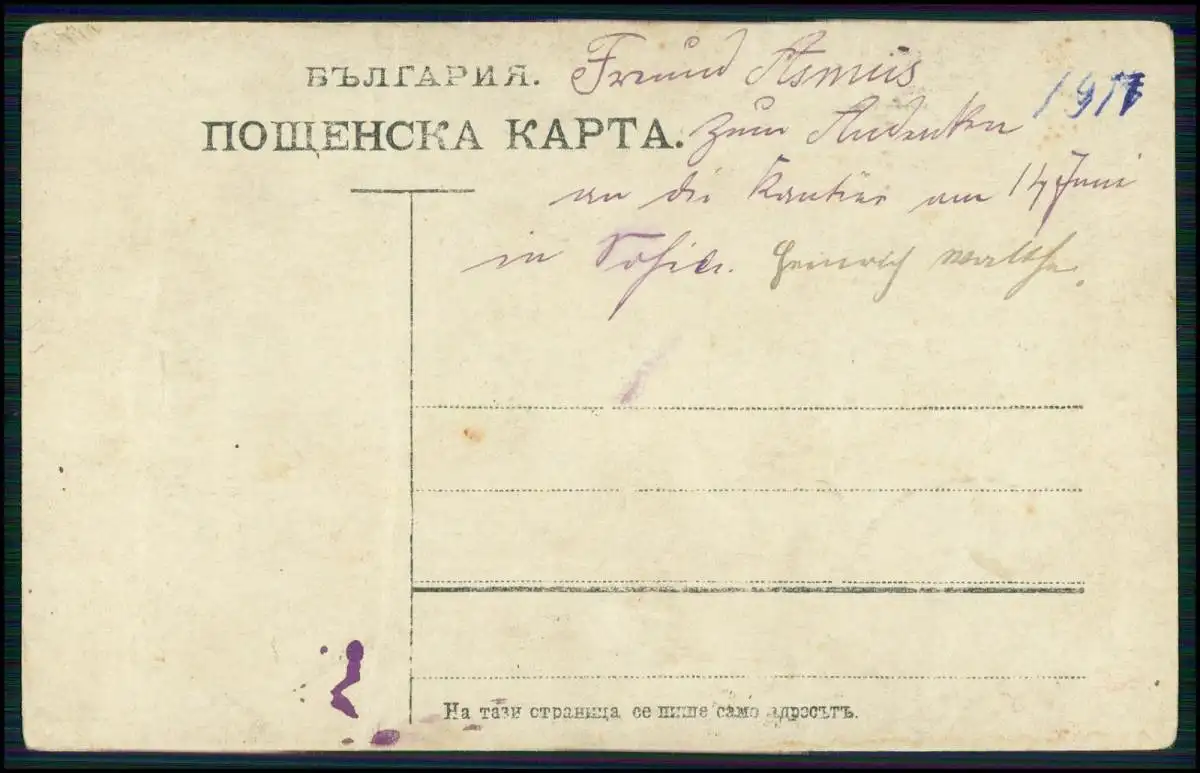 БЪЛГАРИЯ.
ПОЩЕНСКА КАРТА.
Freund Asmus
1917
zum Andenken
an die am 14 Juni
in Sofia. Heinrich Walthe.
На тази страница се пише само адресътъ.